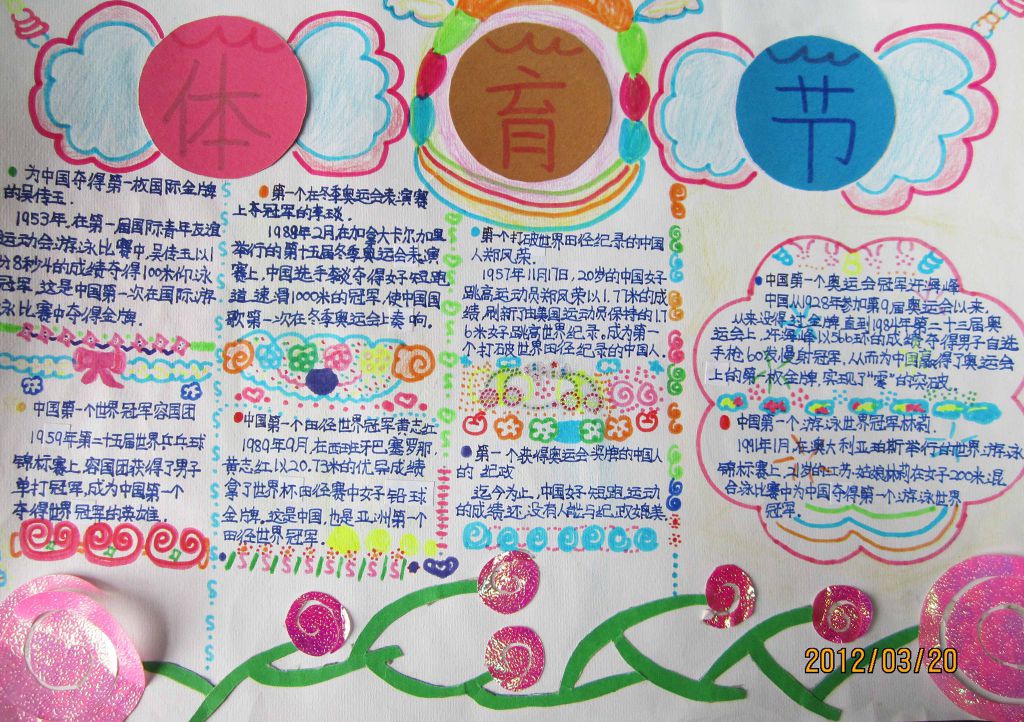 体 育 节
为中国夺得第一枚国际金牌
的吴传玉.
1953年.在第一届国际青年友谊
运动会游泳比赛中,吴传玉以1
分8秒4的成绩夺得100米仰泳
冠军,这是中国第一次在国际游
泳比赛中夺得金牌.
中国第一个世界冠军容国团
1959年第二十五届世界乒乓球
锦标赛上,容国团获得了男子
单打冠军,成为中国第一个
夺得世界冠军的英雄.
第一个在冬季奥运会表演赛
上夺冠军的李琰.
1989年2月,在加拿大卡尔加里
举行的第十五届冬季奥运会表演
赛上,中国选手李琰夺得女子短跑
道速滑1000米的冠军,使中国国
歌第一次在冬季奥运会上奏响.
中国第一个田径世界冠军黄志红
1989年9月,在西班牙巴塞罗那,
黄志红以20.73米的优异成绩
拿了世界杯田径赛中女子铅球
金牌。这是中国,也是亚洲第一个
田径世界冠军.
第一个打破世界田径纪录的中国
人郑凤荣.
1957年11月17日,20岁的中国女子
跳高运动员郑凤荣以1.77米的成
绩,刷新了由美国运动员保持的1.76
米女子跳高世界纪录,成为第一
个打破世界田径纪录的中国人.
第一个获得奥运会奖牌的中国人
的纪政
迄今为止,中国女子短跑运动
的成绩还没有人能与纪政媲美.
中国第一个奥运会冠军许海峰
中国从1928年参加第9届奥运会以来,
从来没得过金牌,直到1984年第二十三届奥
运会上,许海峰以566环的成绩夺得男子自选
手枪60发慢射冠军,从而为中国赢得了奥运会
上的第一枚金牌,实现了"零"的突破
中国第一个游泳世界冠军林莉.
1991年1月,在澳大利亚珀斯举行的世界游泳
锦标赛上,21岁的江苏姑娘林莉在女子200米混
合泳比赛中为中国夺得第一个游泳世界
冠军.
2012/03/20